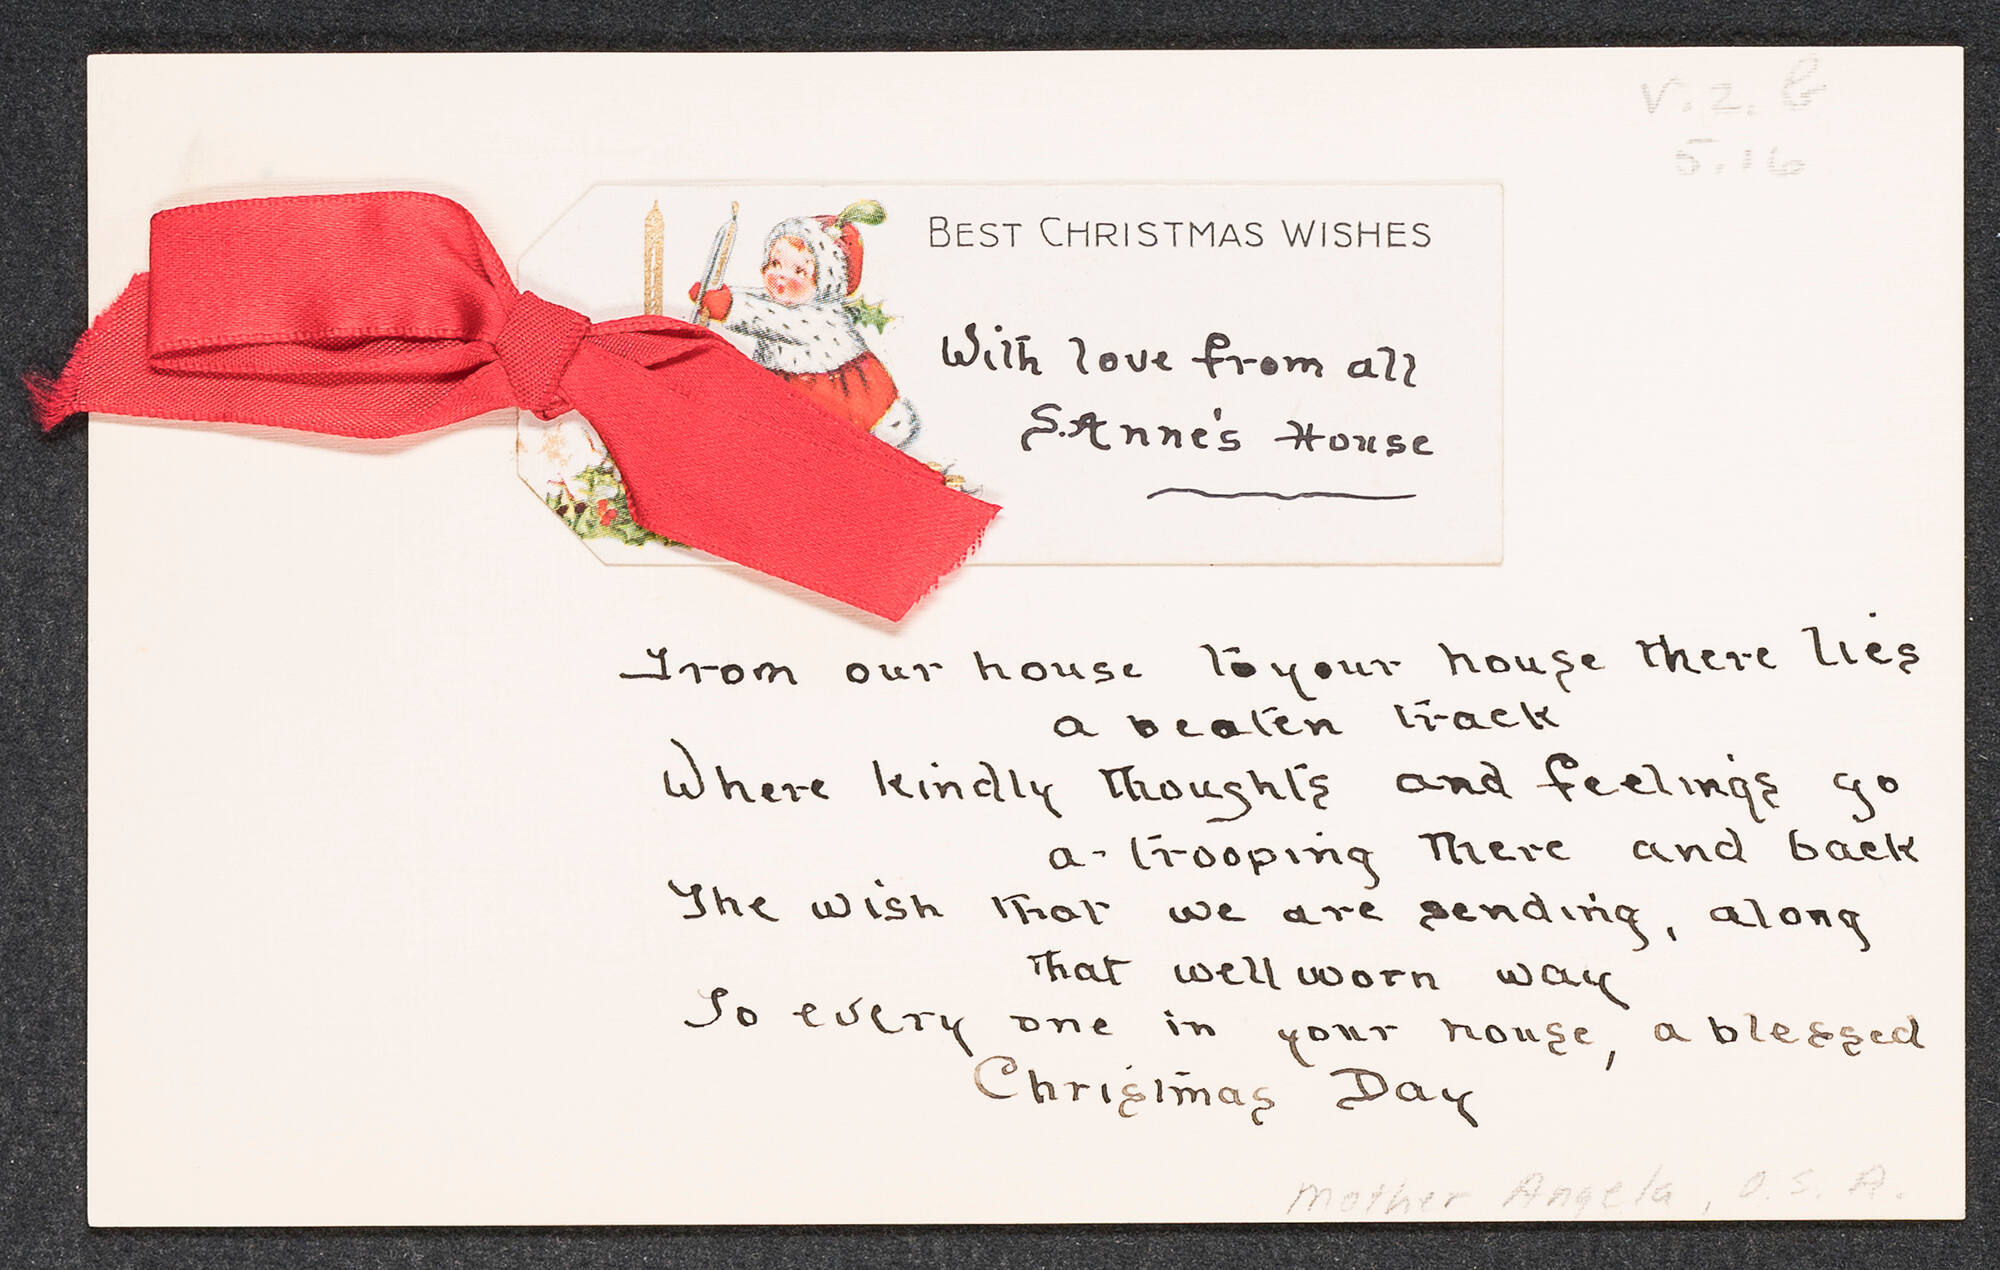 V. 2. b
5.16
BEST CHRISTMAS WISHES
With love from all
S. Anne's House
From our house to your house there lies
a beaten track
Where kindly thoughts and feelings go
a-trooping there and back
The wish that we are sending, along
that well worn way
To every one in your house, a blessed
Christmas Day
Mother Angela, O.S.A.